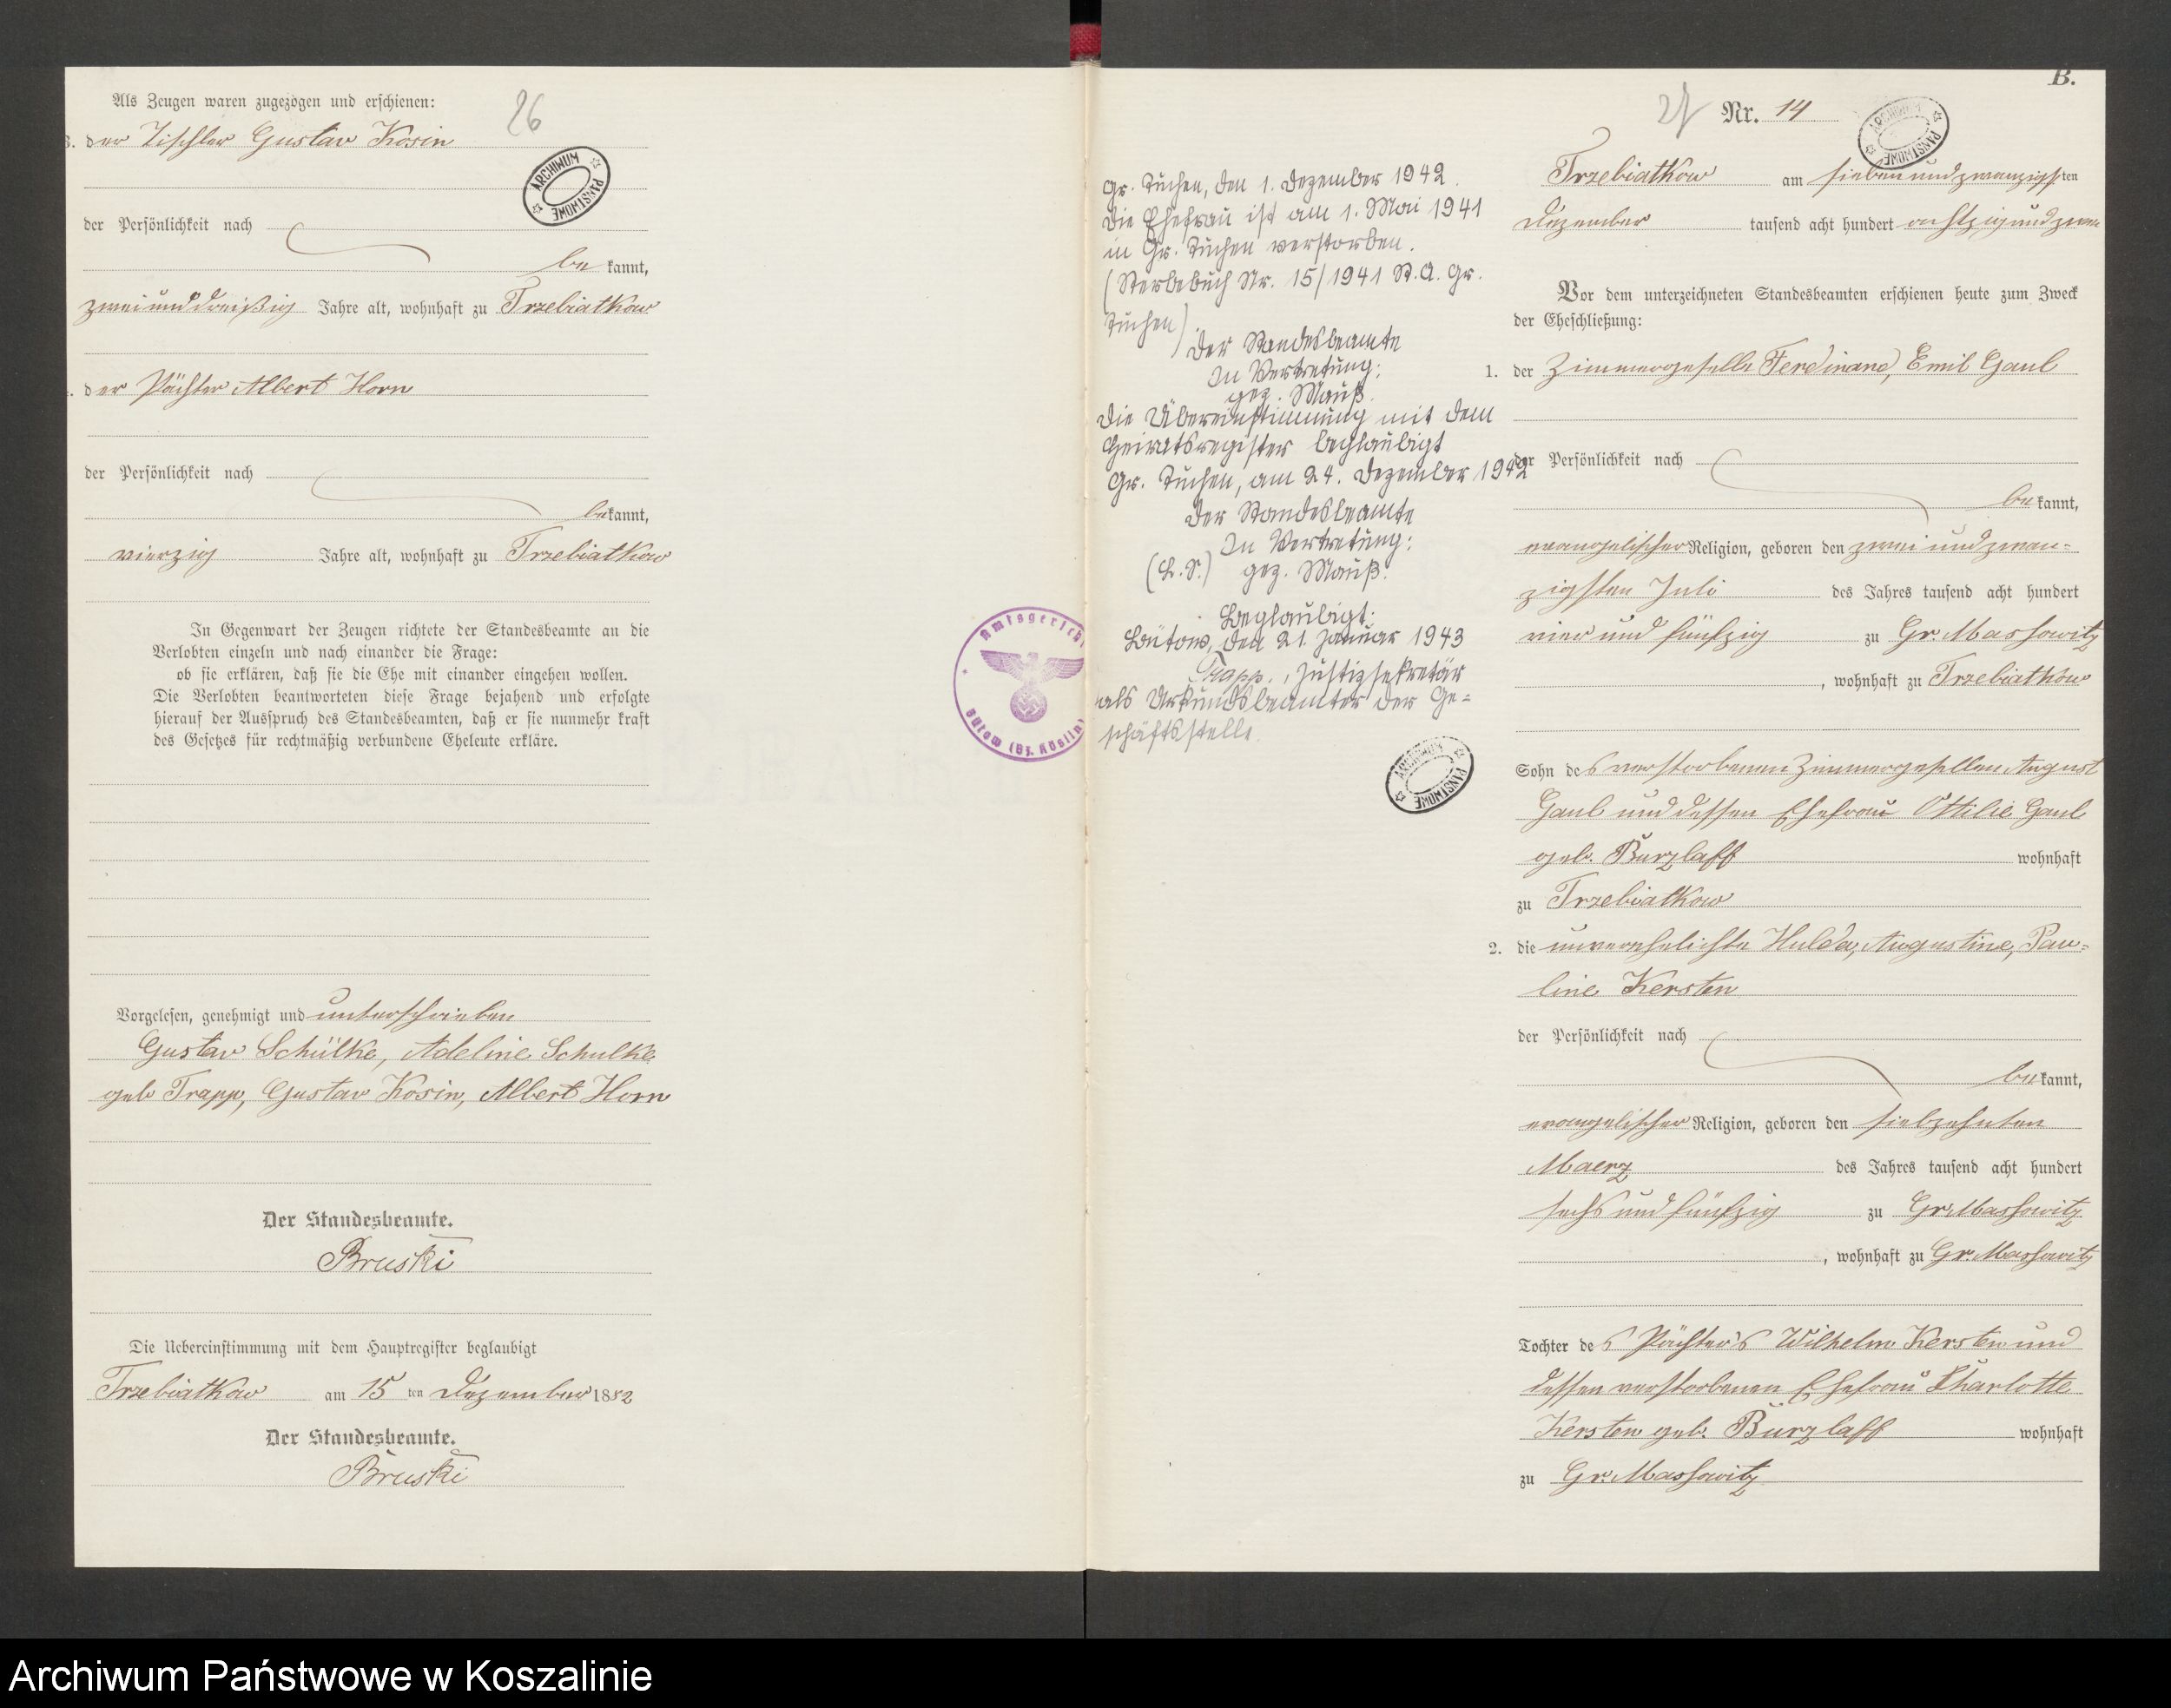 Als Zeugen waren zugezogen und erschienen:
26
3. der Tischler Gustav Kosin
ARCHIWUM PAŃSTWOWE
der Persönlichkeit nach
bekannt,
zweiunddreißig Jahre alt, wohnhaft zu Trzebiatkow
der Pächter Albert Horn
der Persönlichkeit nach
bekannt,
vierzig Jahre alt, wohnhaft zu Trzebiatkow
In Gegenwart der Zeugen richtete der Standesbeamte an die
Verlobten einzeln und nach einander die Frage:
ob sie erklären, daß sie die Ehe mit einander eingehen wollen.
Die Verlobten beantworteten diese Frage bejahend und erfolgte
hierauf der Ausspruch des Standesbeamten, daß er sie nunmehr kraft
des Gesetzes für rechtmäßig verbundene Eheleute erkläre.
Vorgelesen, genehmigt und unterschrieben
Gustav Schülke, Adeline Schulke
geb Trapp, Gustav Kosin, Albert Horn
Der Standesbeamte.
Bruski
Die Uebereinstimmung mit dem Hauptregister beglaubigt
Trzebiatkow am 15 ten Dezember 1882
Der Standesbeamte.
Bruski
Amtsgericht
Bütow (Bz. Köslin)
Gr. Tuchen, den 1. Dezember 1942.
Die Ehefrau ist am 1. Mai 1941
in Gr. Tuchen verstorben.
(Sterbebuch Nr. 15/1941 St.A. Gr.
Tuchen).
Der Standesbeamte
In Vertretung:
gez. Mauß.
Die Übereinstimmung mit dem
Heiratsregister beglaubigt
Gr. Tuchen, am 24. Dezember 1942
Der Standesbeamte
In Vertretung:
(L.S.) gez. Mauß.
Beglaubigt:
Bütow, den 21. Januar 1943
Trapp., Justizsekretär
als Urkundsbeamter der Ge=
schäftsstelle.
ARCHIWUM PAŃSTWOWE
B.
27 Nr. 14
ARCHIWUM PAŃSTWOWE
Trzebiatkow am siebenundzwanzigsten
Dezember tausend acht hundert achtzigundzwei
Vor dem unterzeichneten Standesbeamten erschienen heute zum Zweck
der Eheschließung:
1. der Zimmergeselle Ferdinand, Emil Gaul
der Persönlichkeit nach
bekannt,
evangelischer Religion, geboren den zwei und zwan=
zigsten Juli des Jahres tausend acht hundert
vier und fünfzig zu Gr. Massowitz
, wohnhaft zu Trzebiatkow
Sohn des verstorbenen Zimmergesellen August
Gaul und dessen Ehefrau Ottilie Gaul
geb. Burzlaff wohnhaft
zu Trzebiatkow
2. die unverehelichte Hulda, Augustine, Pau=
line Kersten
der Persönlichkeit nach
bekannt,
evangelischer Religion, geboren den siebzehnten
Maerz des Jahres tausend acht hundert
sechs und fünfzig zu Gr. Massowitz
, wohnhaft zu Gr. Massowitz
Tochter des Pächter's Wilhelm Kersten und
dessen verstorbenen Ehefrau Charlotte
Kersten geb. Burzlaff wohnhaft
zu Gr. Massowitz
Archiwum Państwowe w Koszalinie